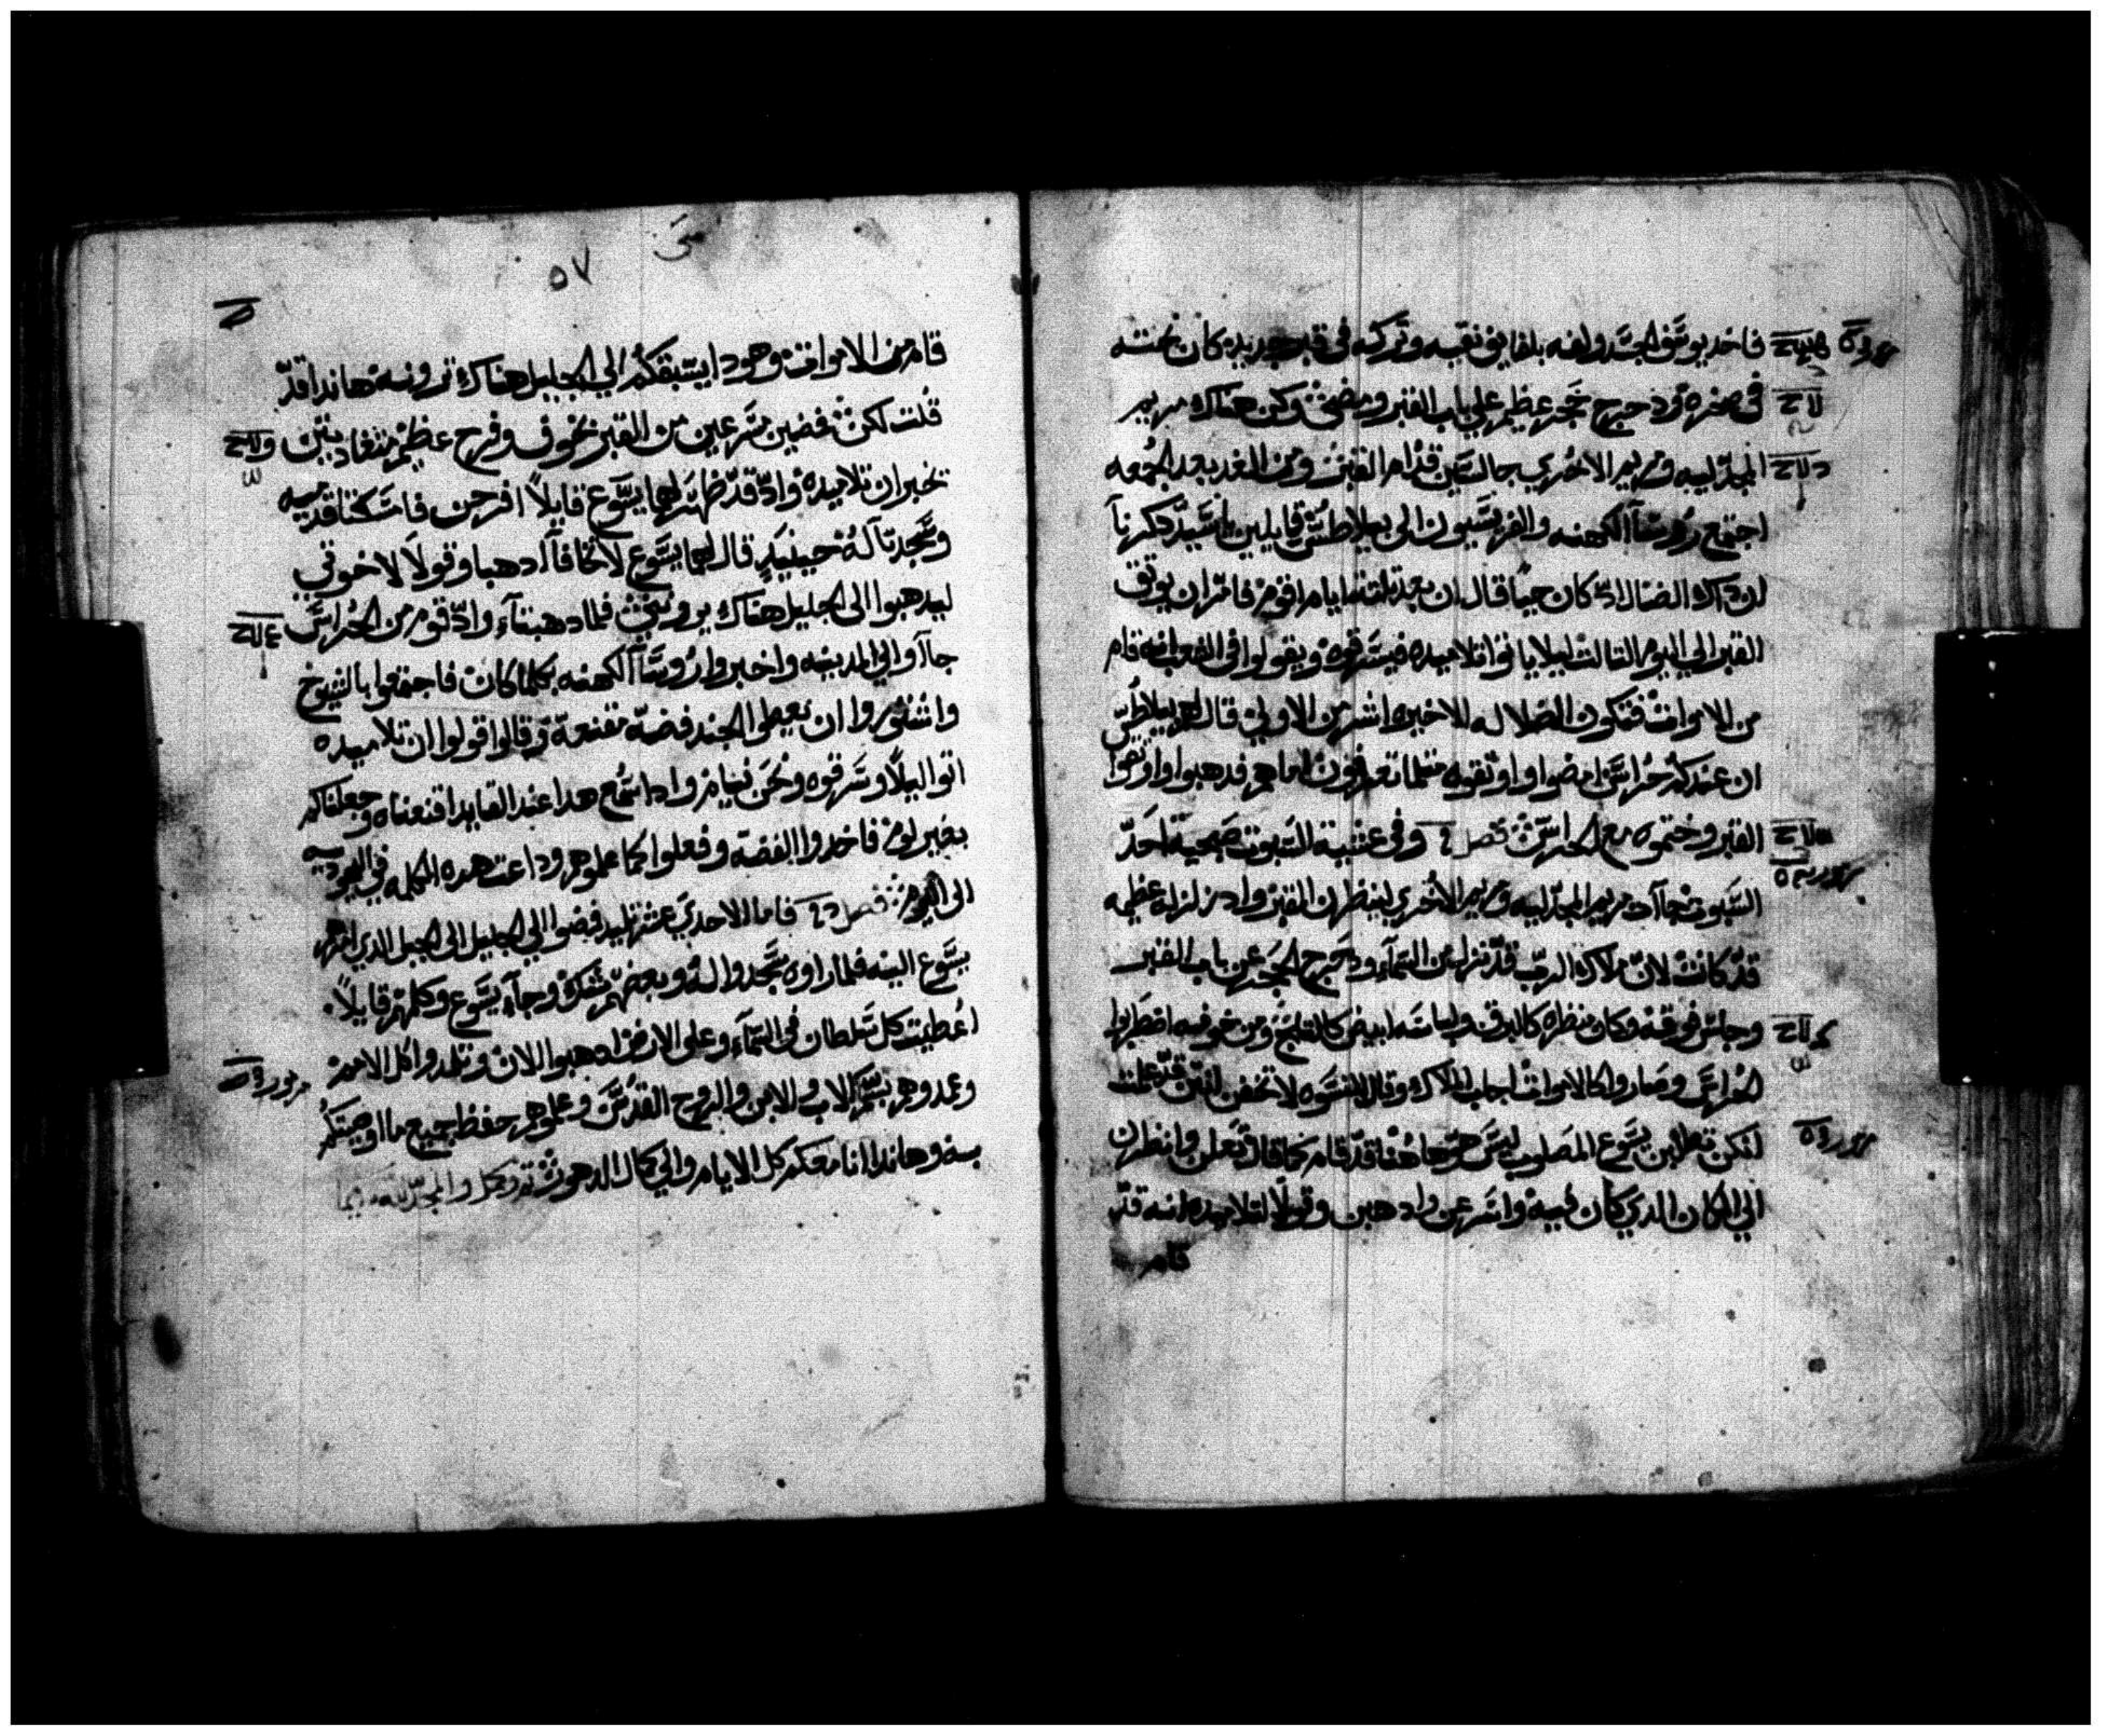 فاخد يوسف الجسد ولفه بلفايف نقيه وتركه في قبر جديد كان نحته
في صخره ودحرج حجر عظيم علي باب القبر ومضى وكن هناك مريم
المجدليه ومريم الاخري جالستين قدام القبر ومن الغد بعد الجمعه
اجتمع روسا الكهنه والفريسيون الى بيلاطس قايلين ياسيد دكرنا
ان داك الضال اد كان حيا قال ان بعد تلتة ايام اقوم فامر ان يوتق
القبر الي اليوم التالت ليلا ياتوا تلاميده فيسرقوه ويقولوا في الشعب انه قام
من الاموات فتكون الضلاله الاخيره اشر من الاولي قال لهم بيلاطس
ان عندكم حراس امضوا واوتقوه متلما تعرفون اما هم فدهبوا واوتقوا
القبر وختموه مع الحراس فصل وفي عشية السبوت صبحية احد
السبوت جاات مريم المجدليه ومريم الاخري لينظرن القبر واد زلزله عظيمه
قد كانت لان ملاك الرب قد نزل من السماء ودحرج الحجر عن باب القبر
وجلس فوقه وكان منظره كالبرق ولباسه ابيض كالتلج ومن خوفه اضطربوا
الحراس وصاروا كالاموات اجاب الملاك وقال للنسوه لا تخفن انتن قد علمت
انكن تطلبن يسوع المصلوب ليس هو هاهنا قد قام كما قال تعلن وانظرن
الي المكان الدي كان فيه واسرعن وادهبن وقولا لتلاميده انه قد
قام
متى
٥٧
قام من الاموات وهودا يسبقكم الي الجليل هناك ترونه هاندا قد
قلت لكن فمضين بسرعه من القبر بخوف وفرح عظيم
تخبران تلاميده واد قد ظهر لهما يسوع قايلا افرحن فامسكتا قدميه
وسجدتا له حينيد قال لهما يسوع لا تخافا ادهبا وقولا لاخوتي
ليدهبوا الى الجليل هناك يروني فلما دهبتا واد قوم من الحراس
جاآوا الي المدينه واخبروا روسا الكهنه بكلما كان فاجتمعوا بالشيوخ
واشتوروا ان يعطوا الجند فضه مقنعة وقالوا قولوا ان تلاميده
اتوا ليلا وسرقوه ونحن نيام واد اسمع هدا عند القايد اقنعناه وجعلناكم
بغير لوم فاخدوا الفضه وفعلوا كما علموهم وداعت هده الكلمه في اليهوديه
الى اليوم فصل فاما الاحدي عشر تلميد فمضوا الي الجليل الى الجبل الدي امرهم
يسوع اليه فلما راوه سجدوا له وبعضهم شكو وجاء يسوع وكلمهم قايلا
اعطيت كل سلطان في السماء وعلى الارض ادهبوا الان وتلمدوا كل الامم
وعمدوهم بسم الاب والابن والروح القدس وعلموهم حفظ جميع ما اوصيتكم
به وهاندا انا معكم كل الايام والي كمال الدهور